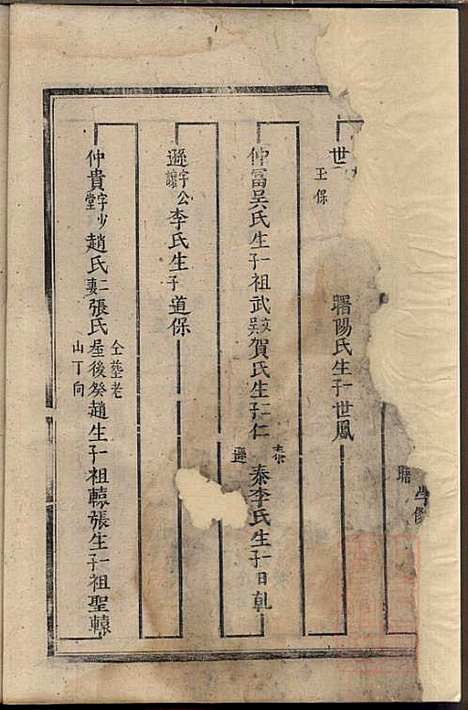 學傑
曙
世
王保
曙陽氏生子一世鳳
仲富吳氏生子一祖武
賀氏生子二仁
泰
遜
泰李氏生子一日乾
遜字公讓李氏生子道保
仲貴字少堂趙氏二妻張氏仝塟老屋後癸山丁向趙生子一祖轅張生子一祖聖轅